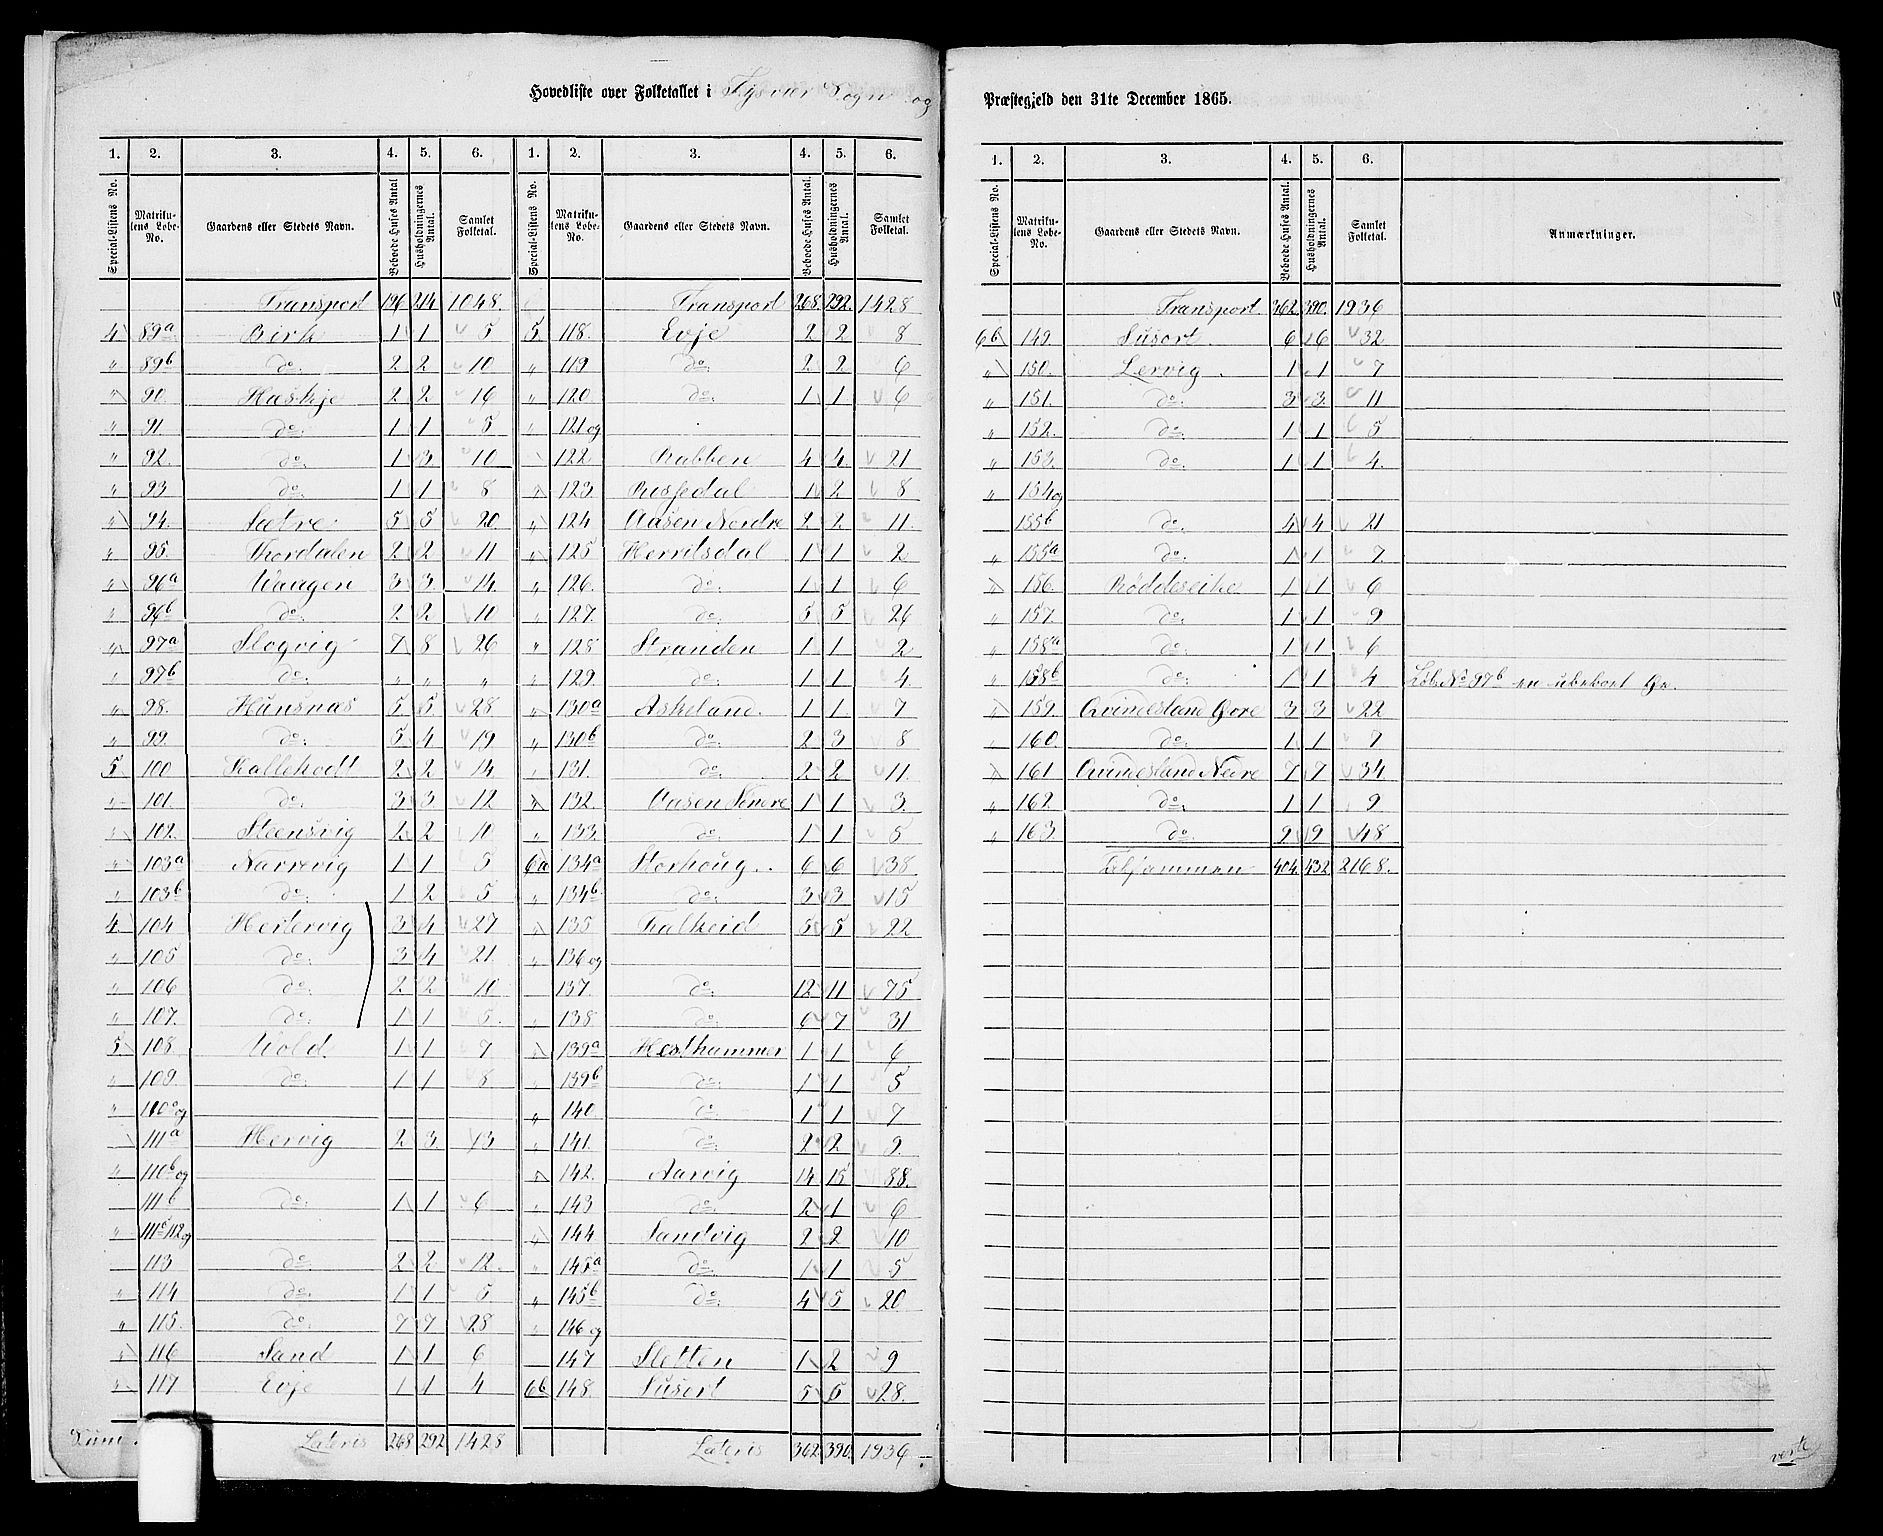 Hovedliste over Folketallet i Tysvær Sogn og
Præstegjeld den 31te December 1865.
1. 2. 3. 4. 5. 6. 1. 2. 3. 4. 5. 6.
Special-Listens No. Matriku-lens Løbe-No. Gaardens eller Stedets Navn. Beboede Huses Antal Husholdningernes Antal. Samlet Folketal. Special-Listens No. Matriku-lens Løbe-No. Gaardens eller Stedets Navn. Beboede Huses Antal. Husholdningernes Antal. Samlet Folketal.
Transport 196 214 1048.
4 89a Birk 1 1 5
" 89b do: 2 2 10
" 90 Haskje 2 2 16
" 91 do: 1 1 5
" 92. do: 1 3 10
" 93 do: 1 1 8
" 94. Sætre 5 5 20
" 95. Thordalen 2 2 11
" 96a Vaagen 3 3 14
" 96b do: 2 2 10
" 97a Slogvig 7 8 26
" 97b do: " " "
" 98. Hunsnæs 5 5 28
" 99. do: 5 4 19
5 100 Kallekodt 2 2 14
" 101. do: 3 3 12
" 102. Steensvig 2 2 10
" 103a Narrevig 1 1 5
" 103b do: 1 2 5
4. 104 Hertervig 3 4 27
" 105 do: 3 4 21.
" 106 do: 2 2 10
" 107. do: 1 1 5.
5 108. Vold 1 1 7
" 109. do: 1 1 8
" 110a og
111a Hervig 2 3 13
" 110b og
111b do: 1 1 6
" 111c 112 og
113 do: 2 2 12
" 114 do: 1 1 5
" 115. do: 7 7 28
" 116 Sand 1 1 6
" 117 Evje 1 1 4
Lateris 268 292 1428
Transport 268. 292. 1428
5. 118. Evje 2 2 8
" 119 do: 2 2 6
" 120 do: 1 1 6
" 121 og
122 Rabben 4 4. 21
" 123. Russedal 1 2 8
" 124 Aasen Nordre 2 2 11.
" 125 Herritsdal 1 1 2
" 126. do: 1 1 6
" 127. do: 5 5 26
" 128 Stranden 1 1 2
" 129. do: 1 1 4.
" 130a Askeland. 1 1 7
" 130b do: 2 3 8
" 131. do: 2 2 11.
" 132. Aasen Søndre 1 1 3.
" 133. do: 1 1 5
6a 134a Storhoug. 6 6 38
" 134b. do: 3 3 15
" 135 Falkeid 5 5 22
" 136 og
137. do: 12 11 75
" 138. do: 6 7 31
" 139a Hesthammer 1 1 6
" 139b do: 1 1 5
" 140 do: 1 1 7
" 141. do: 2 2 9.
" 142. Aarvig 14 15 88.
" 143 do: 2 1 6
" 144 Sandvig 2 2 10
" 145a do: 1 1 5
" 145b do: 4 5 20
" 146 og
147 Sletten 1 2 9
6b 148. Susort 5 5 28.
Lateris 362 390. 1936
1. 2. 3. 4. 5. 6.
Special-Listens No. Matriku-lens Løbe-No. Gaardens eller Stedets Navn. Beboede Huses Antal. Husholdningernes Antal. Samlet Folketal. Anmærkninger.
Transport. 362. 390. 1936
6b 149. Susort. 6 6 32
" 150. Lervig. 1 1 7
" 151. do: 3 3. 11
" 152. do: 1 1 5
" 153. do: 1 1 4.
" 154 og
155b do. 4 4 21
" 155a do: 1 1 7.
" 156. Røddeseike 1 1 6
" 157. do: 1 1 9
" 158a do: 1 1 6
" 158b do: 1 1 4 Løb. No 97b en ubeboet Øe.
" 159. Qvindesland Øvre 3 3 22
" 160. do: 1 1 7
" 161 Qvindesland Nedre 7 7 34
" 162. do: 1 1 9
" 163. do: 9 9 48
Tilsammen 404. 432. 2168.
verte